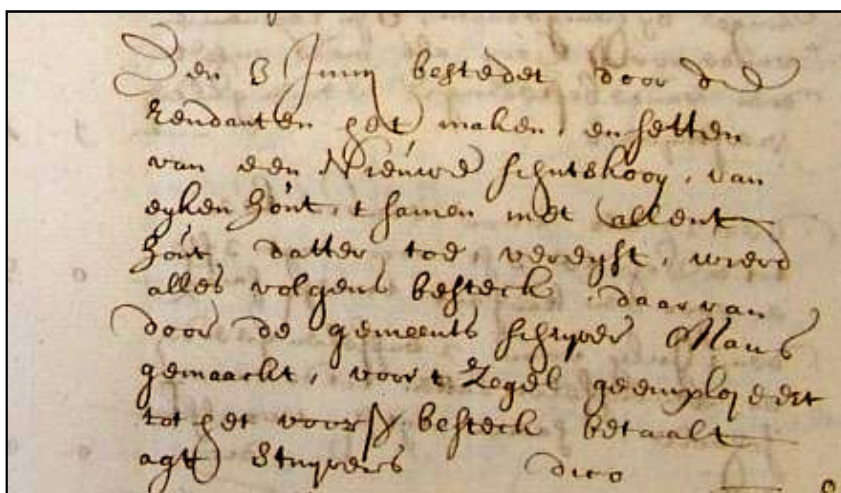 Den 3 Junij bestedet door de
Rendanten het maken, en setten
van een Nieuwe schutskooy, van
eyken hout, t samen met allent
hout datter toe, vereyst, wierd
alles volgens besteck daar van
door de gemeents schryver Maus
gemaackt, voor t Zegel geemployeert
tot het voors besteck betaalt
agt stuyvers dico